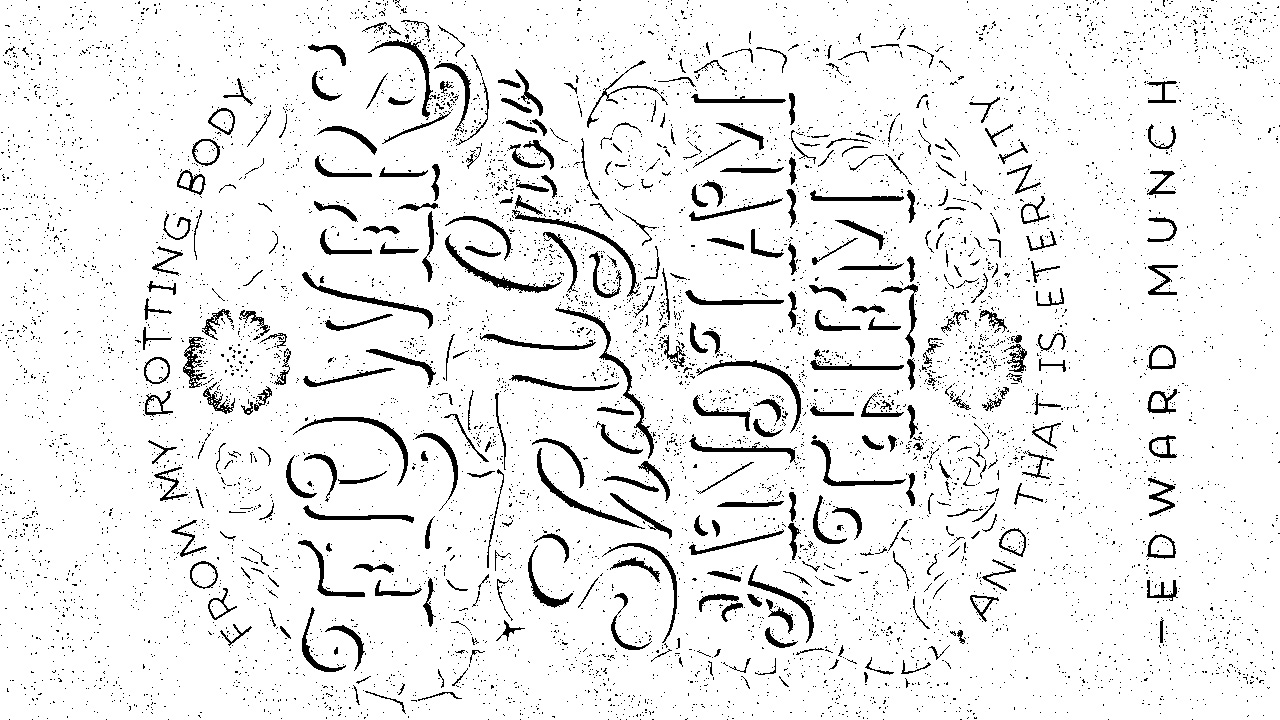 FROM MY ROTTING BODY
FLOWERS
Shall Grow
AND I AM
IN THEM
AND THAT IS ETERNITY
—EDWARD MUNCH